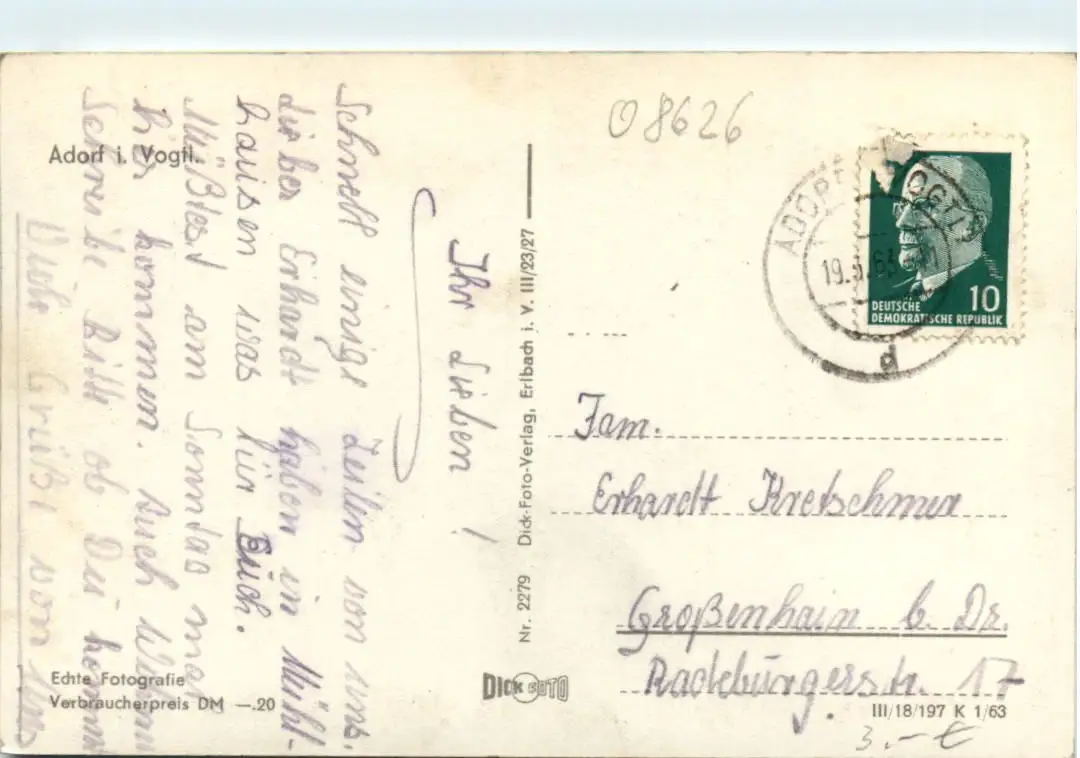 Adorf i. Vogtl.
Ihr Lieben!
Schnell einige Zeilen von uns.
Lieber Erhardt haben in Mühl-
hausen was für Euch.
Müßtest am Sonntag mal
hier kommen. Auch
Schreibe Bitte ob Du kommst
Viele Grüße von uns
Echte Fotografie
Verbraucherpreis DM —.20
Nr. 2279 Dick-Foto-Verlag, Erlbach i. V. III/23/27
DICK FOTO
08626
ADORF VOGTL
19. 63
d
10
DEUTSCHE
DEMOKRATISCHE REPUBLIK
Fam.
Erhardt Kretschmer
Großenhain b. Dr.
Radeburgerstr. 17
III/18/197 K 1/63
3.– €